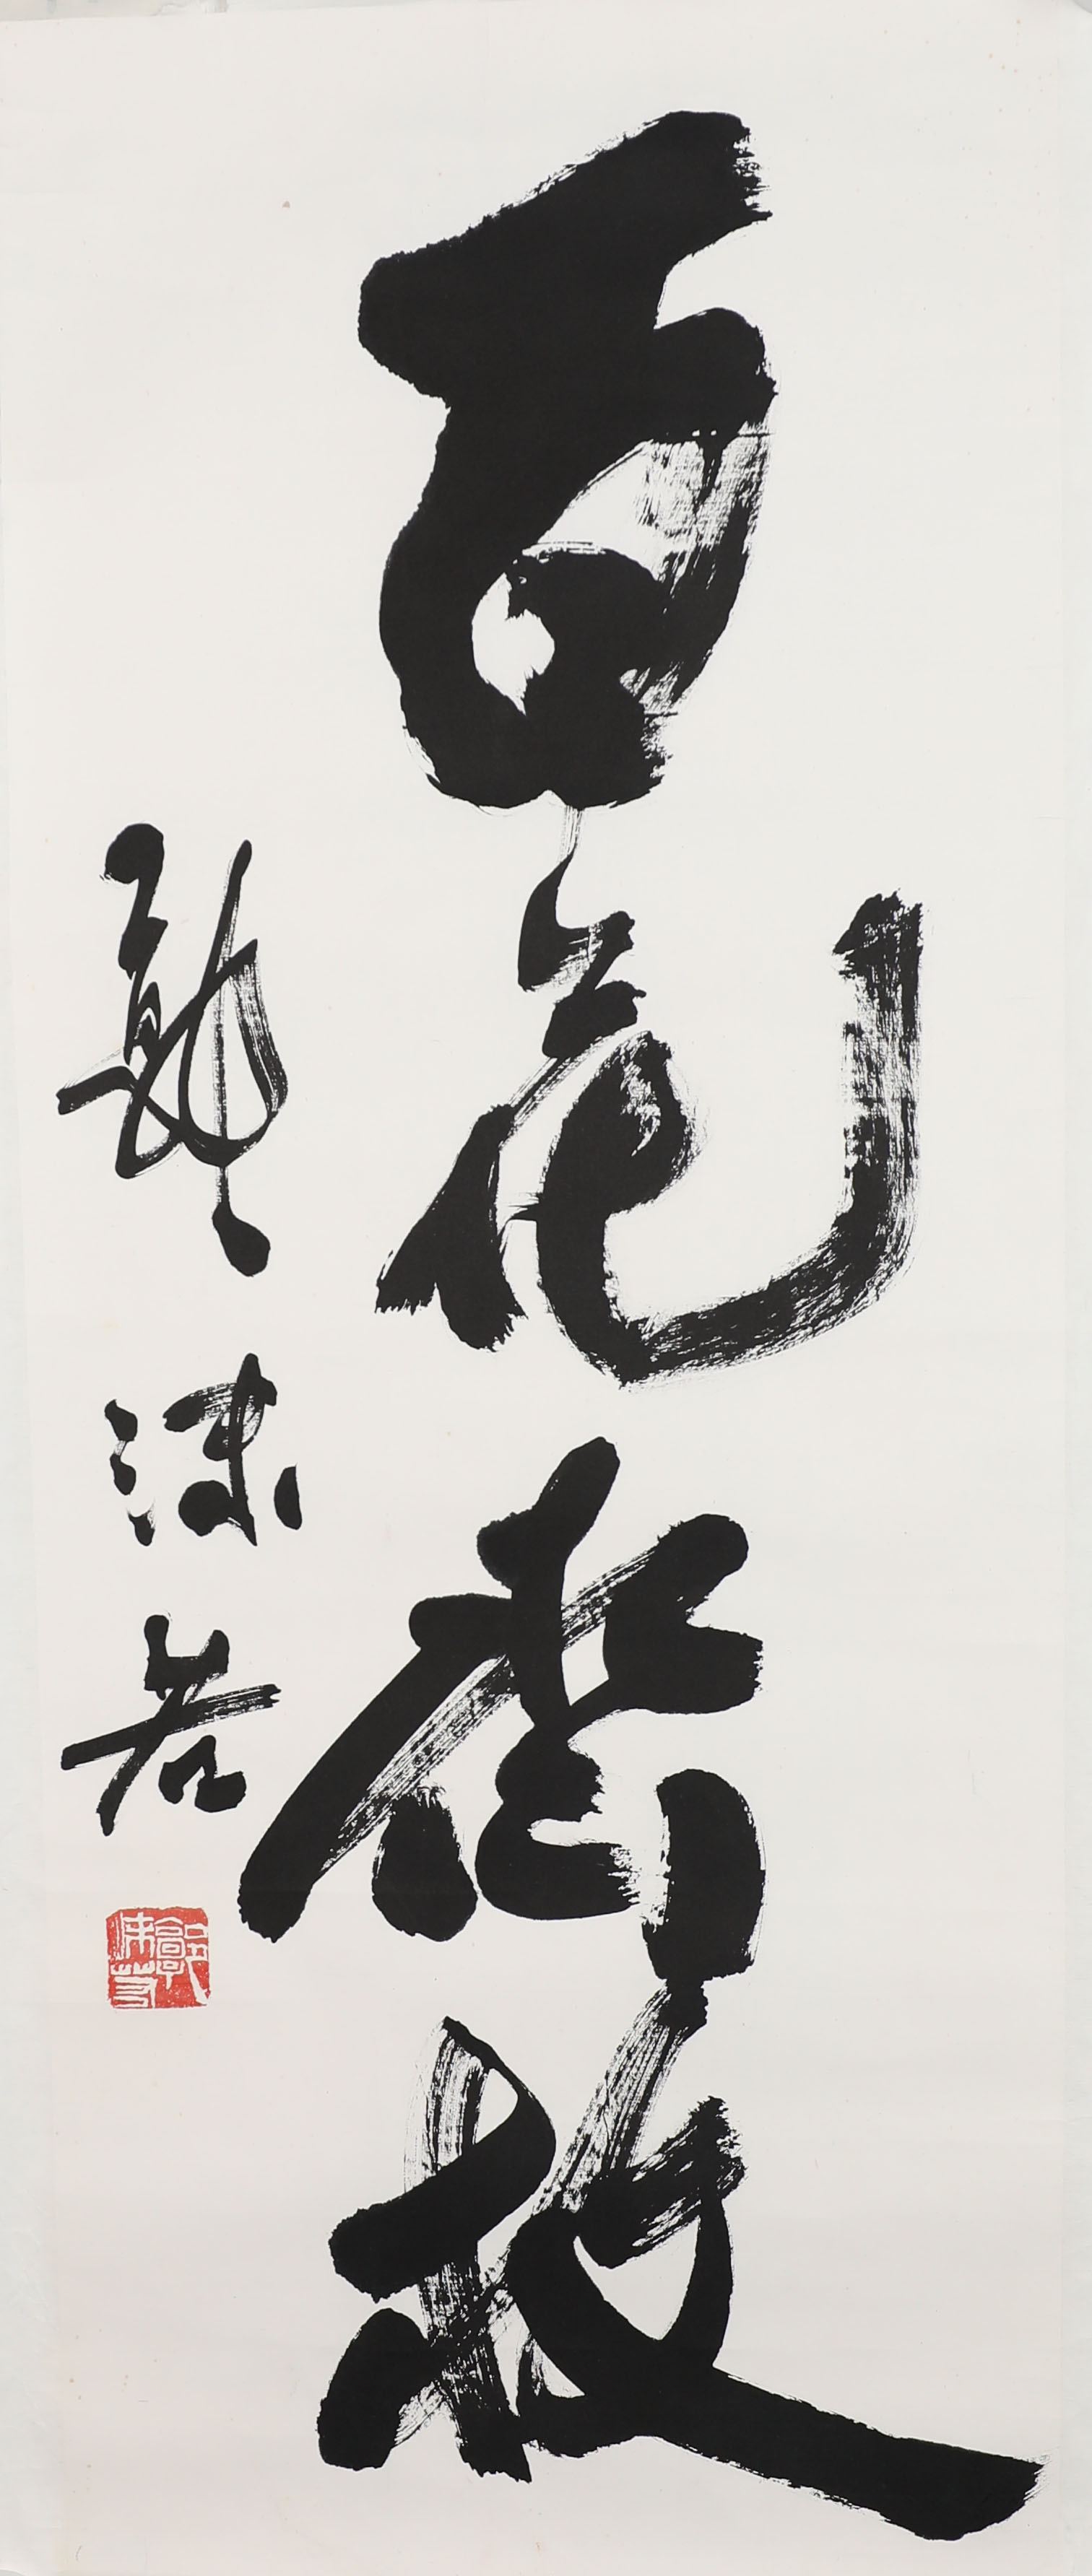 百花齊放
郭沫若
郭沫若